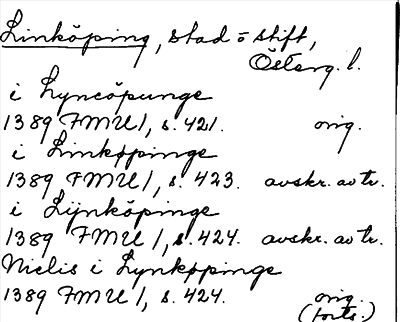 Linköping, stad o stift,
Österg. l.
i Lyncöpunge
1389 FMU 1, s. 421. orig.
i Linkøpinge
1389 FMU 1, s. 423. avskr. av tr.
i Lijnköpinge
1389 FMU 1, s. 424. avskr. av tr.
Nielis i Lynkøpinge
1389 FMU 1, s. 424. orig.
(forts.)